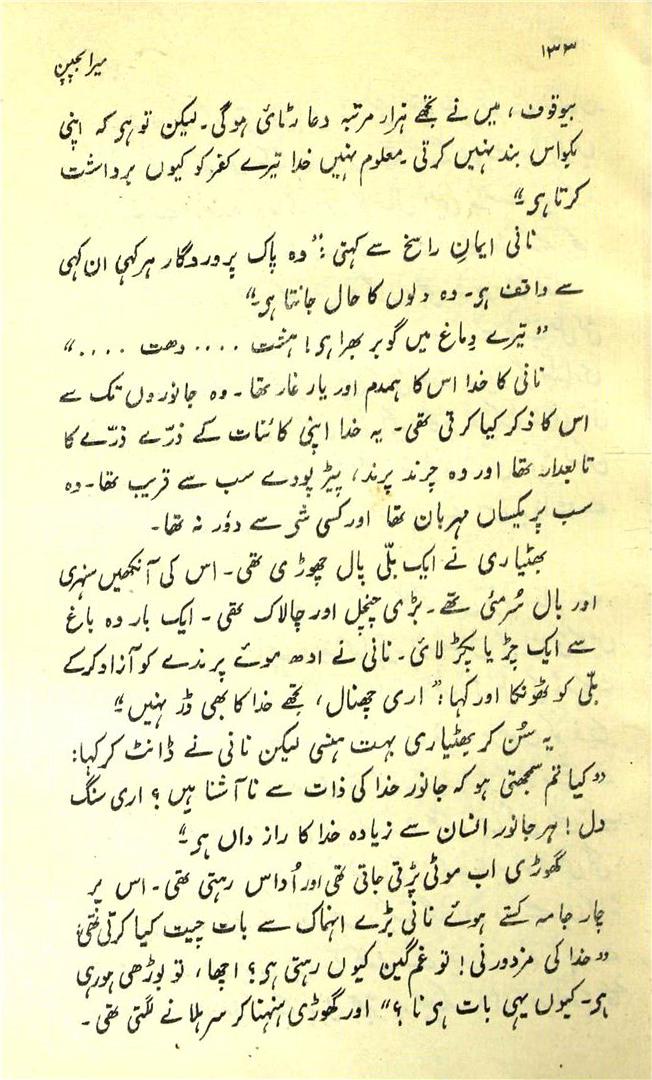 ۱۳۳
میرا بچپن
بیوقوف، میں نے تجھے ہزار مرتبہ دعا رٹائی ہوگی۔ لیکن تو ہو کہ اپنی
بکواس بند نہیں کرتی۔ معلوم نہیں خدا تیرے کفر کو کیوں برداشت
کرتا ہی۔"
نانی ایمانِ راسخ سے کہتی: "وہ پاک پروردگار ہر کہی ان کہی
سے واقف ہی۔ وہ دلوں کا حال جانتا ہی۔"
"تیرے دماغ میں گوبر بھرا ہی! ہشت .... دھت ...."
نانی کا خدا اس کا ہمدم اور یار غار تھا۔ وہ جانوروں تک سے
اس کا ذکر کیا کرتی تھی۔ یہ خدا اپنی کائنات کے ذرّے ذرّے کا
تابعدار تھا اور وہ چرند پرند، پیڑ پودے سب سے قریب تھا۔ وہ
سب پر یکساں مہربان تھا اور کسی شی سے دوٗر نہ تھا۔
بھٹیاری نے ایک بلّی پال چھوڑی تھی۔ اس کی آنکھیں سنہری
اور بال سُرمئی تھے۔ بڑی چنچل اور چالاک تھی۔ ایک بار وہ باغ
سے ایک چڑیا پکڑ لائی۔ نانی نے ادھ موئے پرندے کو آزاد کرکے
بلّی کو ٹھونکا اور کہا: "اری چھنال، تجھے خدا کا بھی ڈر نہیں"
یہ سُن کر بھٹیاری بہت ہنسی لیکن نانی نے ڈانٹ کر کہا:
"کیا تم سمجھتی ہو کہ جانور خدا کی ذات سے ناآشنا ہیں؟ اری سنگ
دل! ہر جانور انسان سے زیادہ خدا کا راز داں ہی۔"
گھوڑی اب موٹی پڑتی جاتی تھی اور اُداس رہتی تھی۔ اس پر
چار جامہ کستے ہوئے نانی بڑے انہماک سے بات چیت کیا کرتی تھی:
"خدا کی مزدورنی! تو غم گین کیوں رہتی ہی؟ اچھا، تو بوڑھی ہو رہی
ہی۔ کیوں یہی بات ہی نا؟" اور گھوڑی ہنہنا کر سر ہلانے لگتی تھی۔